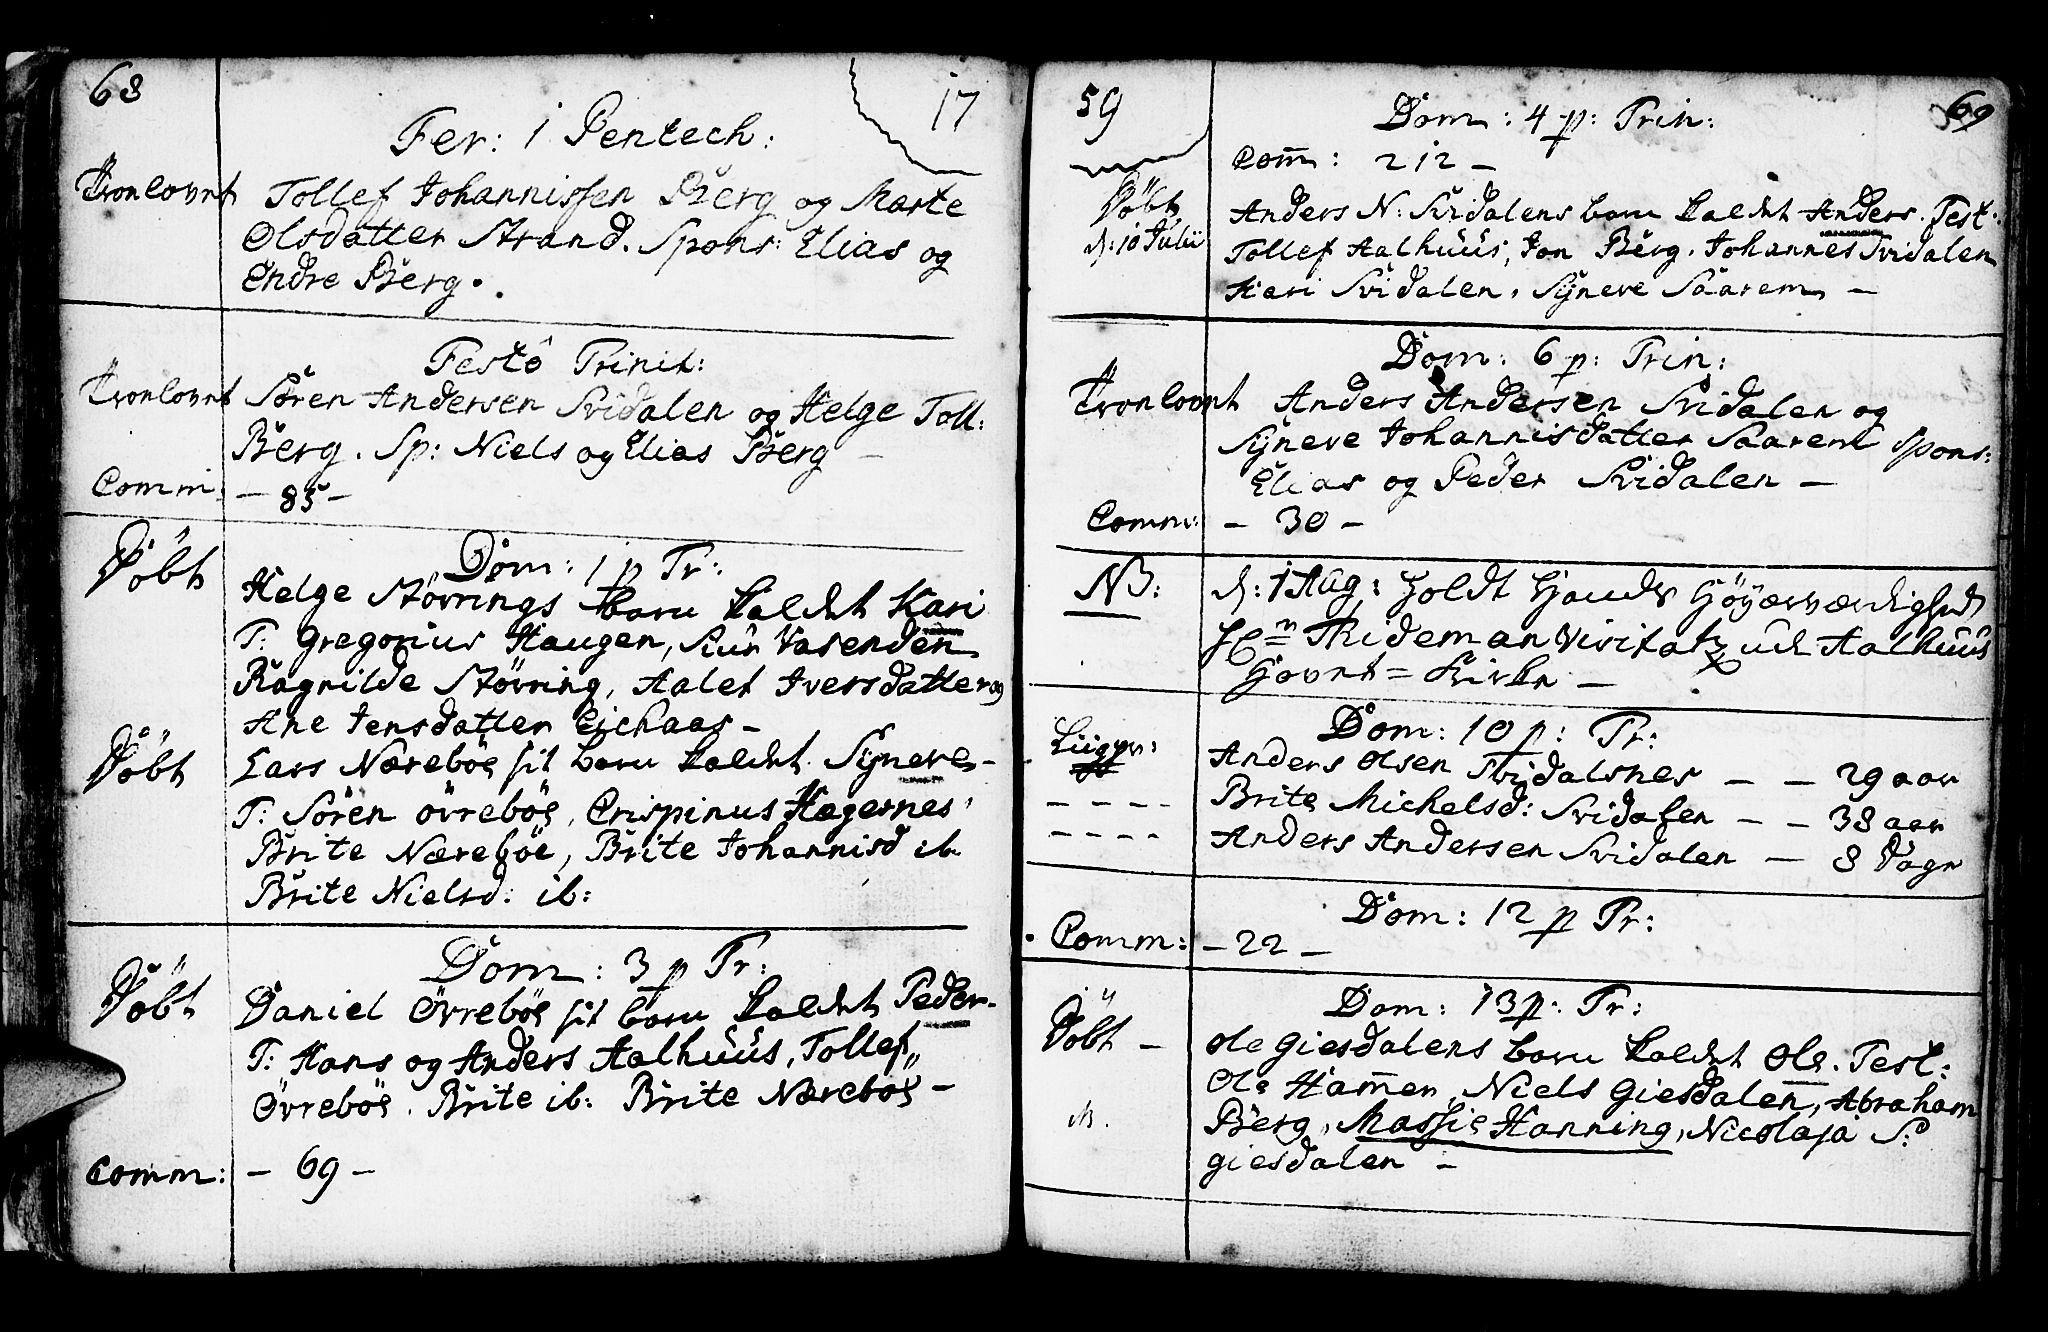 68
17
Fer: 1 Pentech:
Tronlovet Tollef Johannissen Berg og Marte
Olsdatter Strand. Spons: Elias og
Endre Berg.
Festo Trinit:
Tronlovet Sören Andersen Svidalen og Helge Toll:
Berg. Sp: Niels og Elias Berg –
Comm: – 85 –
Dom: 1 p Tr:
Döbt Helge Støvrings barn kaldet Kari
T: Gregorius Haugen, Siur Vasenden
Ragnilde Støvring, Aalet Iversdatter og
Ane Jensdatter Eichaas –
Döbt Lars Nærebøe sit barn kaldet Sÿneve –
T: Sören övrebøe, Crispinus Hægernes,
Brite Nærebøe, Brite Johannisd ib
Brite Nielsd: ib:
Dom: 3 p Tr:
Döbt Daniel Övrebøe sit barn kaldet Peder.
T: Hans og Anders Aalhuus, Tollef
Övrebøe. Brite ib: Brite Nærebøe –
Comm: – 69 –
59
69
Dom: 4 p: Trin:
Com̄: 212 –
Döbt Anders N: Svidalens barn kaldet Anders. Test:
d: 10 Julii Tollef Aalhuus, Jon Berg. Johannes Svidalen
Kari Svidalen, Sÿneve Saarem –
Dom: 6 p: Trin:
Tronlovet Anders Andersen Svidalen og
Sÿneve Johannisdatter Saarem Spons:
Elias og Peder Svidalen –
Comm: – 30 –
NB: d: 1 Aug: holdt hands Höÿærværdighed
Hr Tideman Visitatz ud Aalhuus
Hovet = Kirke –
Dom: 10 p: Tr:
Liiger: Anders Olsen Svidalsnes – – 29 aar
– – – – Brite Michelsd: Svidalen – – 38 aar
– – – – Anders Andersen Svidalen – 8 Dage
Dom: 12 p Tr:
Comm: – 22 –
Dom: 13 p: Tr:
Döbt – Ole Giesdalens barn kaldet Ole. Test:
Ole Ham̄er, Niels Giesdalen, Abraham
Berg, Massie Hanning, Nicolaja S:
giesdalen –